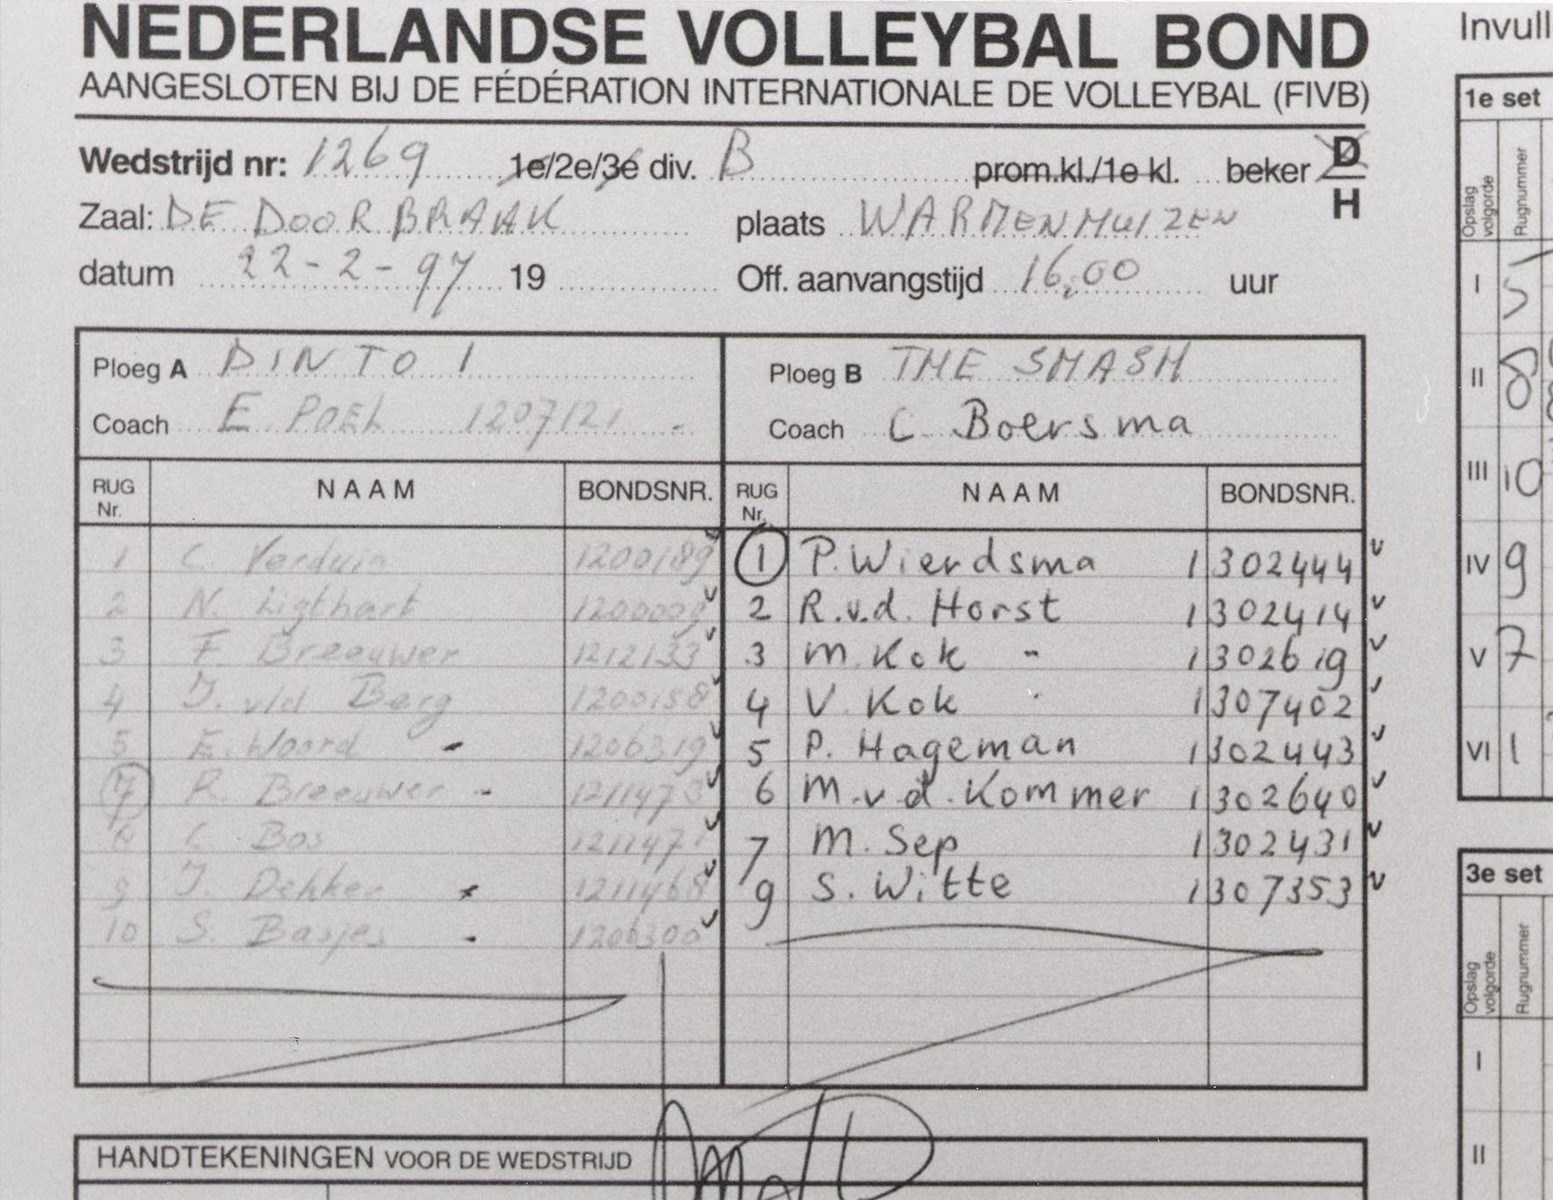 NEDERLANDSE VOLLEYBAL BOND
AANGESLOTEN BIJ DE FÉDÉRATION INTERNATIONALE DE VOLLEYBAL (FIVB)
Wedstrijd nr: 1269 1e/2e/3e div. B prom.kl./1e kl. beker D
H
Zaal: DE DOORBRAAK plaats WARMENHUIZEN
datum 22-2-97 19 Off. aanvangstijd 16,00 uur
Ploeg A DINTO 1 Ploeg B THE SMASH
Coach E POEL 1207121 Coach C. Boersma
RUG Nr. NAAM BONDSNR. RUG Nr. NAAM BONDSNR.
1 C. Verduin 1200189 1 P. Wierdsma 1302444
2 N. Ligthart 1200009 2 R.v.d. Horst 1302414
3 F. Breeuwer 1212133 3 M. Kok 1302619
4 J. v/d Berg 1200158 4 V. Kok 1307402
5 E. Woord 1206319 5 P. Hageman 1302443
7 R. Breeuwer 1211473 6 M.v.d. Kommer 1302640
8 C. Bos 1211471 7 M. Sep 1302431
9 J. Dekker 1211468 9 S. Witte 1307353
10 S. Basjes 1206300
HANDTEKENINGEN VOOR DE WEDSTRIJD
Invull
1e set
Opslag volgorde
Rugnummer
I 5
II 8
III 10
IV 9
V 7
VI 1
3e set
Opslag volgorde
Rugnummer
I
II